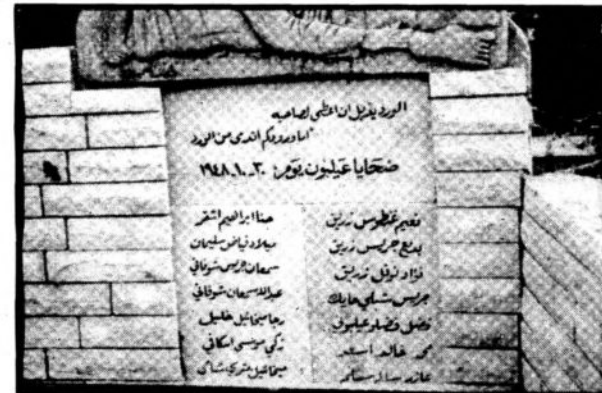 الورد يذبل ان اعطي لصاحبه
اما وردكم اندى من الورد
ضحايا عيلبون يوم: ٣٠-١٠-١٩٤٨
نعيم غطوس زريق
بديع جريس زريق
فؤاد نوفل زريق
جريس شبلي حايك
فضل فضلو عيلبوني
محمد خالد اسعد
حنا ابراهيم اشقر
ميلاد فياض سليمان
سمعان جريس شوفاني
عبدالله سمعان شوفاني
رجا ميخائيل خليل
زكي موسى اسكافي
ميخائيل متري شامي